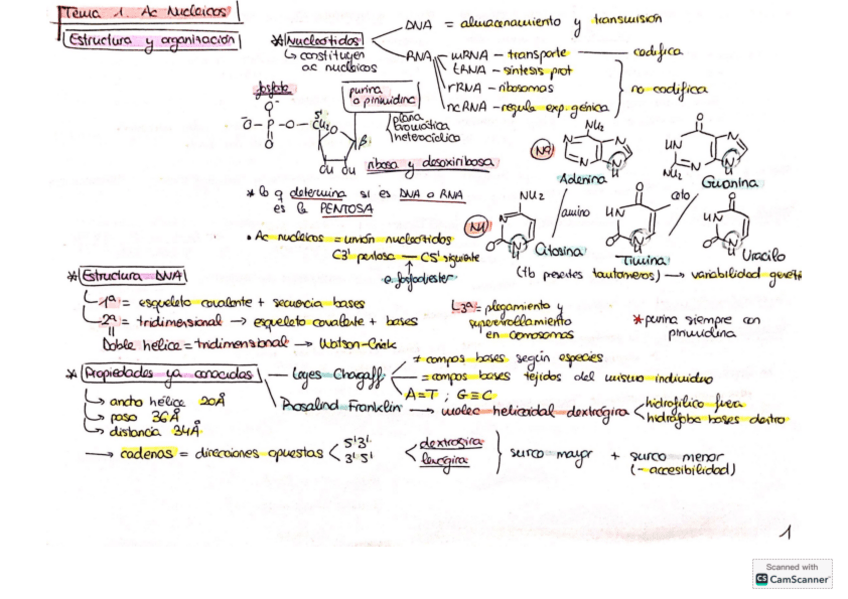 Tema 1. Ac Nucleicos
Estructura y organización
* Nucleótidos
↳ constituyen
ac nucleicos
DNA = almacenamiento y transmisión
RNA
mRNA – transporte — codifica
tRNA – síntesis prot
rRNA – ribosomas
ncRNA – regula exp. génica
no codifica
fosfato
purina
o pirimidina
plana
aromática
heterocíclica
O⁻
⁻O – P – O – CH₂
O
5'
O
β
OH OH
ribosa y desoxirribosa
* lo q determina si es DNA o RNA
es la PENTOSA
N9
NH₂
N
N
N
N
H
Adenina
O
HN
NH₂
N
N
N
H
Guanina
N1
NH₂
N
O
N
H
Citosina
amino
O
HN
O
N
H
Timina
ceto
O
HN
O
N
H
Uracilo
• Ac nucleicos = unión nucleótidos
C3' pentosa – C5' siguiente
e. fosfodiester
(tb presentes tautómeros) → variabilidad genét
* Estructura DNA
↳ 1ª = esqueleto covalente + secuencia bases
↳ 2ª = tridimensional → esqueleto covalente + bases
Doble hélice = tridimensional → Watson-Crick
↳ 3ª = plegamiento y
superenrollamiento
en cromosomas
* purina siempre con
pirimidina
* Propiedades ya conocidas
Leyes Chagaff
≠ compos bases según especies
= compos bases tejidos del mismo individuo
A=T ; G≡C
Rosalind Franklin → molec helicoidal dextrógira
hidrofílico fuera
hidrófoba bases dentro
↳ ancho hélice 20Å
↳ paso 36Å
↳ distancia 34Å
→ cadenas = direcciones opuestas
5'3'
3'5'
dextrogira
levógira
surco mayor + surco menor
(– accesibilidad)
1
Scanned with
CS CamScanner